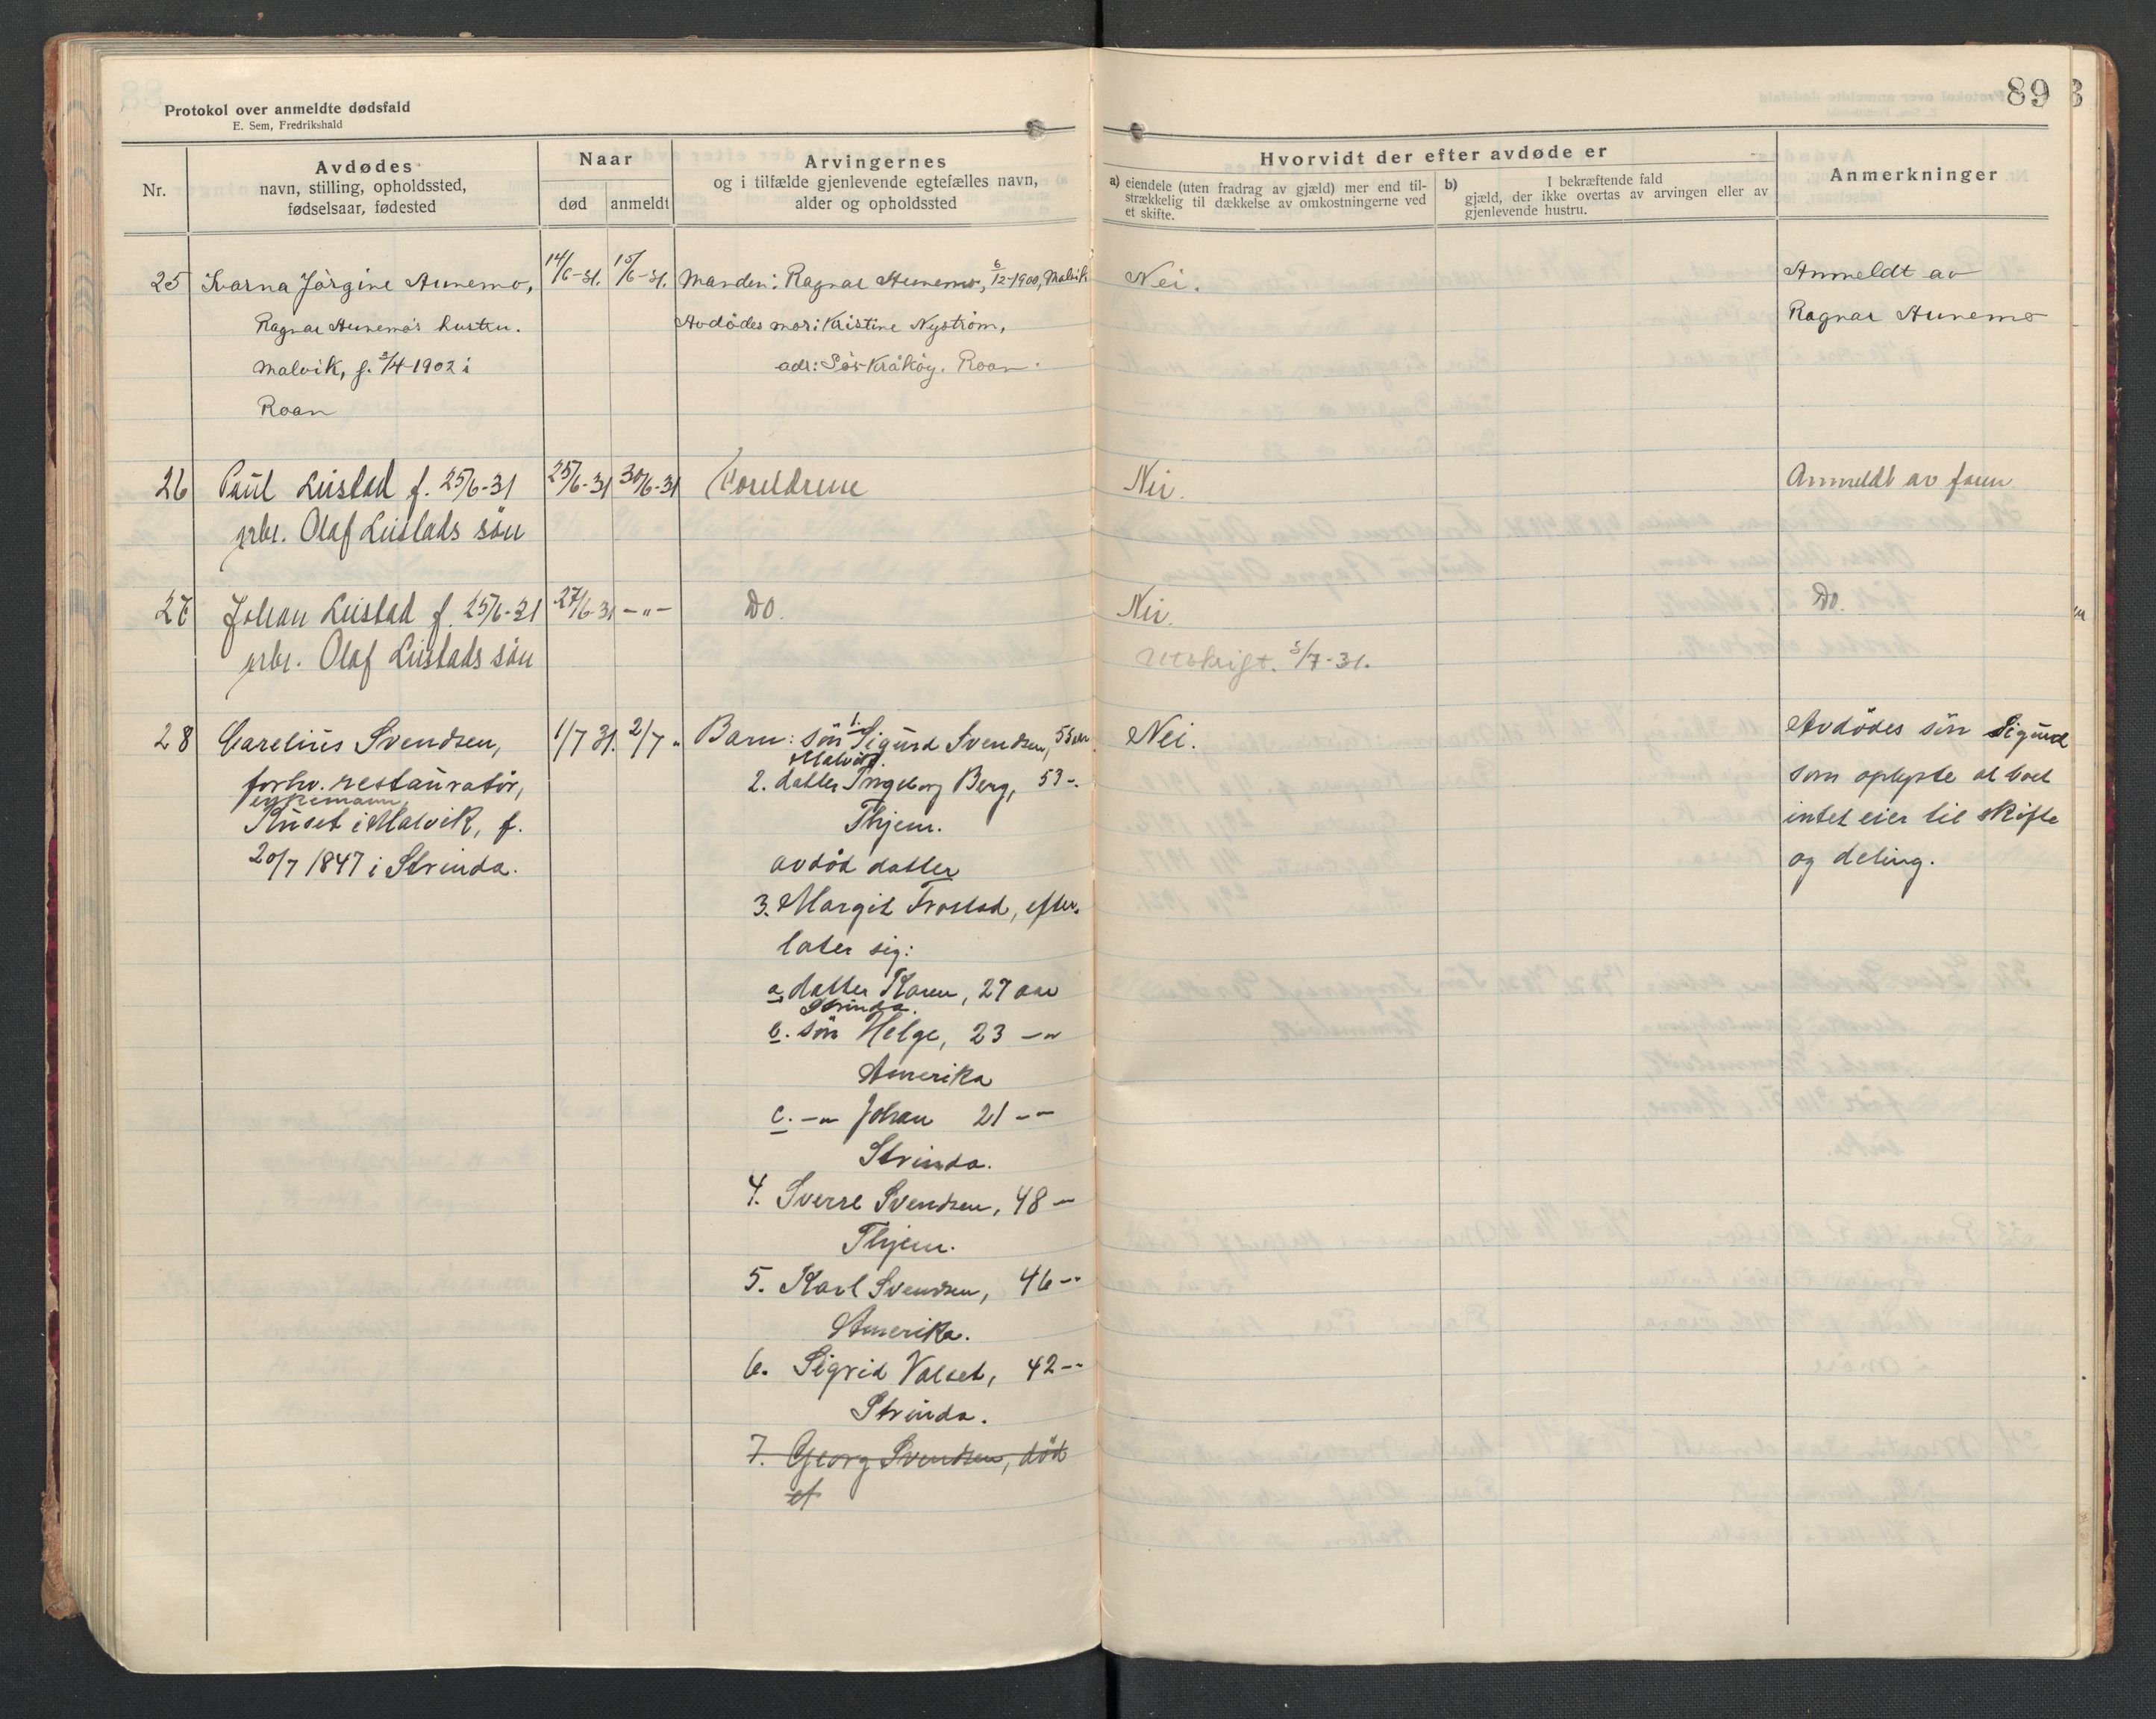 89
Protokol over anmeldte dødsfald
E. Sem, Fredrikshald
Nr.
Avdødes
navn, stilling, opholdssted,
fødselsaar, fødested
Naar
død
anmeldt
Arvingernes
og i tilfælde gjenlevende egtefælles navn,
alder og opholdssted
Hvorvidt der efter avdøde er
a) eiendele (uten fradrag av gjæld) mer end til-
strækkelig til dækkelse av omkostningerne ved
et skifte.
b) I bekræftende fald
gjæld, der ikke overtas av arvingen eller av
gjenlevende hustru.
Anmerkninger
25 Jørgine Aunemo, 14/6-31. 15/6-31. Manden: Ragnar Aunemo, 6/12-1900, Malvik Nei. Anmeldt av
Ragnar Aunemo's hustru. Avdødes mor: Kristine Nystrøm, Ragnar Aunemo
Malvik, f. 3/4-1902 i adr: Sør-Kråkøy. Roan.
Roan
26 Paul Leistad f. 25/6-31 25/6-31 30/6-31 Foreldrene Nei. Anmeldt av faren
arbr. Olaf Leistads søn
27 Johan Leistad f. 25/6-31 27/6-31 -"- Do. Nei. Do.
arbr. Olaf Leistads søn Utskrift. 3/7-31.
28 Carelius Svendsen, 1/7 31. 2/7 " Barn: søn 1. Sigurd Svendsen, 55 aar Nei. Avdødes søn Sigurd
Malvik.
forhv. restauratør, 2. datter Ingeborg Berg, 53 -. som oplyste at boet
enkemann,
Kuset i Malvik, f. Thjem. intet eier til skifte
20/7 1847 i Strinda. avdød datter og deling.
3. Margit Frostad, efter-
later sig:
a. datter Karen, 27 aar
Strinda.
b. søn Helge, 23 -"
Amerika
c. -" Johan 21 --
Strinda.
4. Sverre Svendsen, 48 -
Thjem.
5. Karl Svendsen, 46 --
Amerika.
6. Sigrid Valset, 42 --
Strinda.
7. Georg Svendsen, død
et